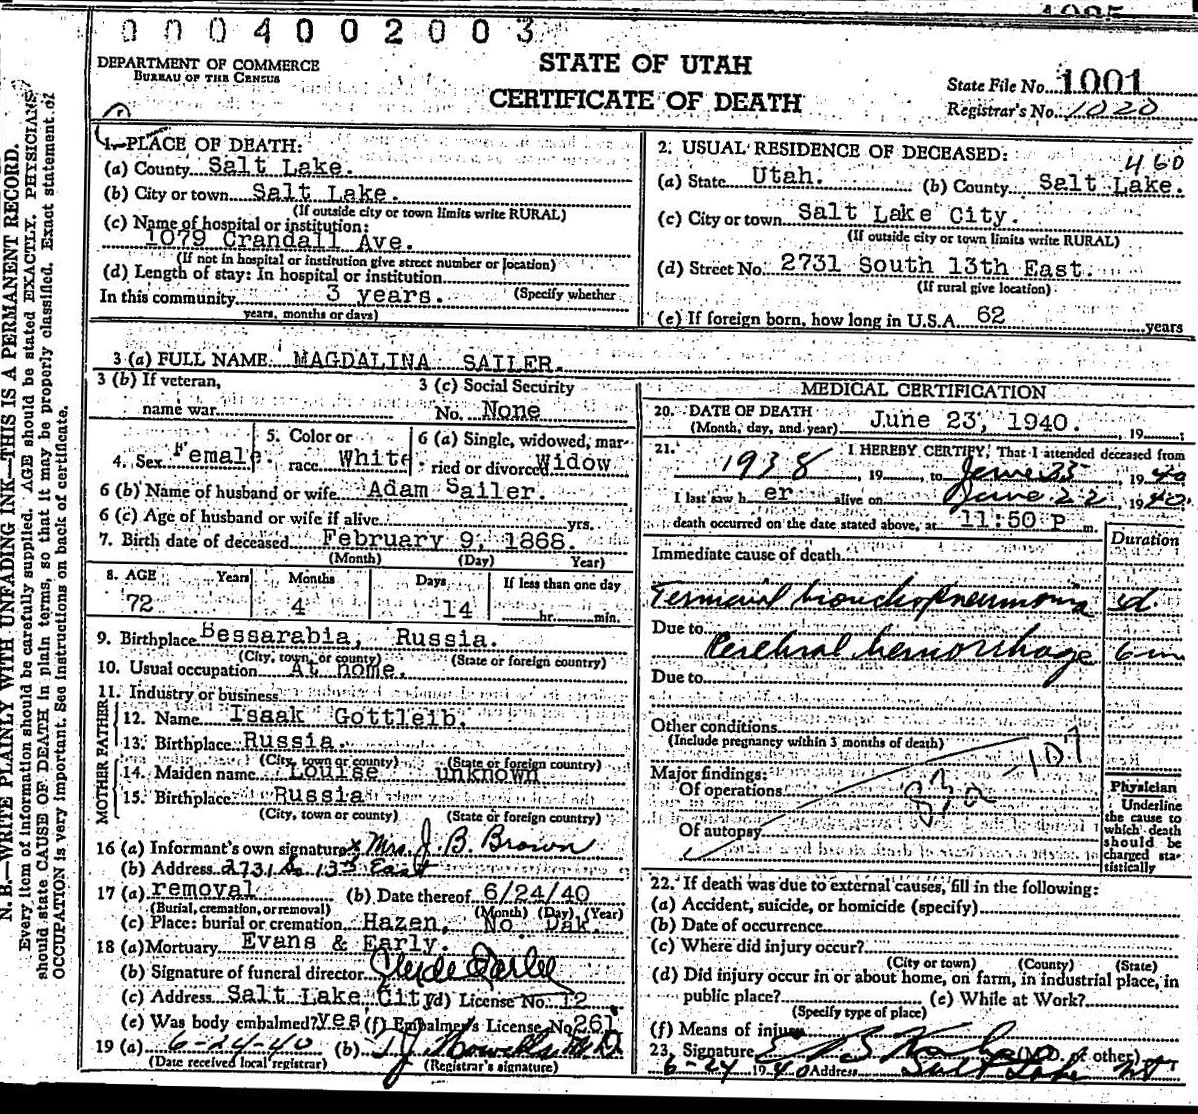 0 0 0 4 0 0 2 0 0 3
DEPARTMENT OF COMMERCE
BUREAU OF THE CENSUS
STATE OF UTAH
CERTIFICATE OF DEATH
State File No. 1001
Registrar's No. 1020
N. B.—WRITE PLAINLY WITH UNFADING INK—THIS IS A PERMANENT RECORD.
Every item of information should be carefully supplied. AGE should be stated EXACTLY. PHYSICIANS
should state CAUSE OF DEATH in plain terms, so that it may be properly classified. Exact statement of
OCCUPATION is very important. See instructions on back of certificate.
1. PLACE OF DEATH:
(a) County Salt Lake.
(b) City or town Salt Lake.
(If outside city or town limits write RURAL)
(c) Name of hospital or institution:
1079 Crandall Ave.
(If not in hospital or institution give street number or location)
(d) Length of stay: In hospital or institution
In this community 3 years. (Specify whether
years, months or days)
2. USUAL RESIDENCE OF DECEASED: 460
(a) State Utah. (b) County Salt Lake.
(c) City or town Salt Lake City.
(If outside city or town limits write RURAL)
(d) Street No. 2731 South 13th East.
(If rural give location)
(e) If foreign born, how long in U.S.A. 62 years
3 (a) FULL NAME MAGDALINA SAILER.
3 (b) If veteran,
name war
3 (c) Social Security
No. None
4. Sex Female.
5. Color or
race White
6 (a) Single, widowed, mar-
ried or divorced Widow
6 (b) Name of husband or wife Adam Sailer.
6 (c) Age of husband or wife if alive yrs.
7. Birth date of deceased February 9, 1868.
(Month) (Day) Year)
8. AGE Years Months Days If less than one day
72 4 14 hr. min.
9. Birthplace Bessarabia, Russia.
(City, town, or county) (State or foreign country)
10. Usual occupation At home.
11. Industry or business
FATHER
12. Name Isaak Gottleib.
13. Birthplace Russia.
(City, town or county) (State or foreign country)
MOTHER
14. Maiden name Louise unknown
15. Birthplace Russia
(City, town or county) (State or foreign country)
16 (a) Informant's own signature x Mrs. J. B. Brown
(b) Address 2731 So 13th East
17 (a) removal (b) Date thereof 6/24/40
(Burial, cremation, or removal) (Month) (Day) (Year)
(c) Place: burial or cremation Hazen, No. Dak.
18 (a) Mortuary Evans & Early.
(b) Signature of funeral director Clyde Early
(c) Address Salt Lake City (d) License No. 12
(e) Was body embalmed? yes (f) Embalmer's License No. 261
19 (a) 6-24-40 (b) T J Howells M.D.
(Date received local registrar) (Registrar's signature)
MEDICAL CERTIFICATION
20. DATE OF DEATH
(Month, day, and year) June 23, 1940. , 19 ;
21. I HEREBY CERTIFY, That I attended deceased from
1938 , 19 , to June 23 1940
I last saw h er alive on June 22 1940.
death occurred on the date stated above, at 11:50 P m.
Duration
Immediate cause of death
Terminal bronchopneumonia 4d.
Due to
Cerebral hemorrhage 6 m
Due to
Other conditions
(Include pregnancy within 3 months of death)
-107
Major findings:
Of operations 83a
Of autopsy
Physician
Underline
the cause to
which death
should be
charged sta-
tistically
22. If death was due to external causes, fill in the following:
(a) Accident, suicide, or homicide (specify)
(b) Date of occurrence
(c) Where did injury occur?
(City or town) (County) (State)
(d) Did injury occur in or about home, on farm, in industrial place, in
public place? (e) While at Work?
(Specify type of place)
(f) Means of injury
23. Signature (M.D. or other)
6-24 1940 Address Salt Lake